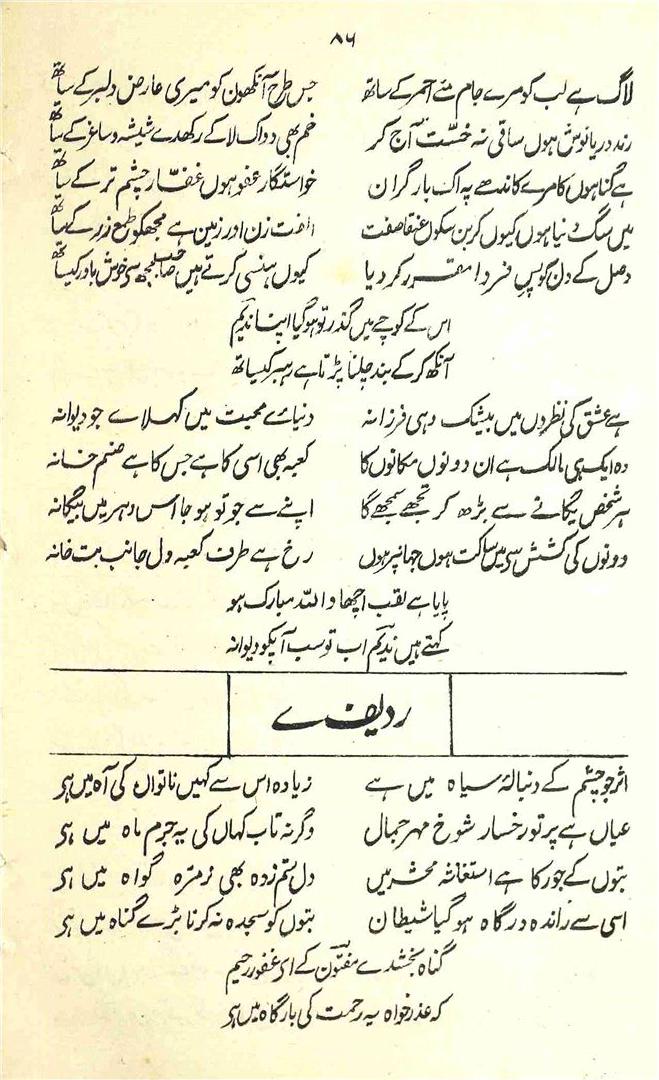 ۸۶
لاگ ہے لب کو مرے جام مئے احمر کے ساتھ جس طرح آنکھوں کو میری عارض دلبر کے ساتھ
رند دریا نوش ہوں ساقی نہ خسّت آج کر خم بھی دو اک لا کے رکھدے شیشہ و ساغر کے ساتھ
ہے گناہوں کا مرے کاندھے پہ اک بار گران خواستگار عفو ہوں غفّار چشم تر کے ساتھ
میں سگ دنیا ہوں کیوں کر بن سکوں عنقا صفت الفت زن اور زمین ہے مجھکو طمع زر کے ساتھ
وصل کے دن گوئس فردا مقرر کردیا کیوں ہنسی کرتے ہیں صاحب مجھ سی خوش باور کیساتھ
اس کے کوچے میں گذر تو ہوگیا اپنا ندیم
آنکھ کر کے بند چلنا پڑتا ہے رہبر کیساتھ
ہے عشق کی نظروں میں بیشک وہی فرزانہ دنیائے محبت میں کہلائے جو دیوانہ
وہ ایک ہی مالک ہے ان دونوں مکانوں کا کعبہ بھی اسی کا ہے جس کا ہے صنم خانہ
ہر شخص یگانے سے بڑھ کر تجھے سمجھے گا اپنے سے جو تو ہو جا اس دہر میں بیگانہ
دونوں کی کشش سی میں ساکت ہوں جہانپر ہوں رخ ہے طرف کعبہ دل جانب بت خانہ
پایا ہے لقب اچھا واللہ مبارک ہو
کہتے ہیں ندیم اب تو سب آپکو دیوانہ
ردیف ے
اثر جو چشم کے دنبالۂ سیاہ میں ہے زیادہ اس سے کہیں ناتواں کی آہ میں ہی
عیاں ہے پر تو رخسار شوخ مہر جمال وگرنہ تاب کہاں کی یہ جرم ماہ میں ہی
بتوں کے جور کا ہے استغاثہ محشر میں دل ستم زدہ بھی زمرّہ گواہ میں ہی
اسی سے راندہ درگاہ ہوگیا شیطان بتوں کو سجدہ نہ کرنا بڑے گناہ میں ہی
گناہ بخشدے مفتون کے ای غفور رحیم
کہ عذر خواہ یہ رحمت کی بارگاہ میں ہی